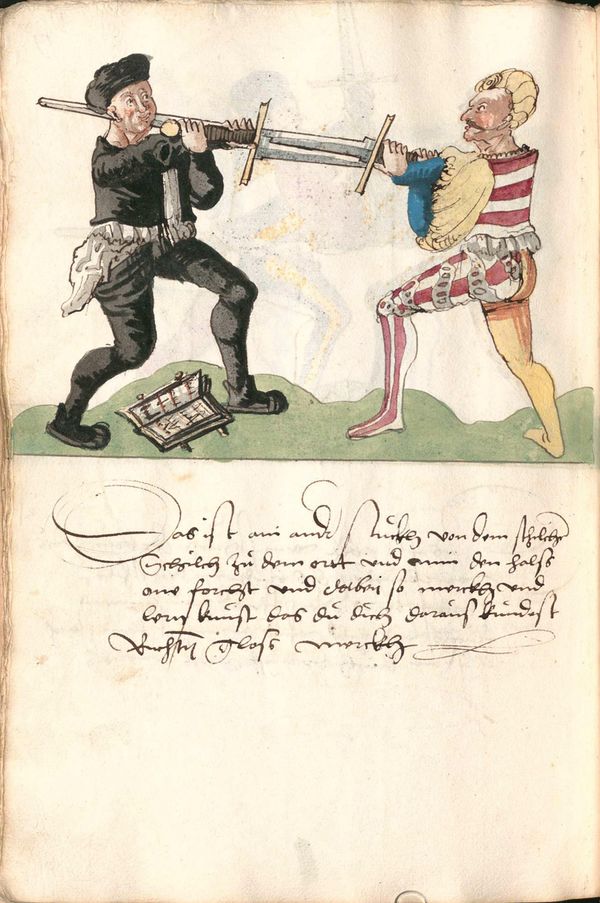 Das ist ain ander stuckh von dem schilchē
Schilch zu dem ortt vnd nim den halss
one forcht vnd dabei so merckh vnd
lern kunst das du dich daraus kundest
Richtn̄ gloss merckh